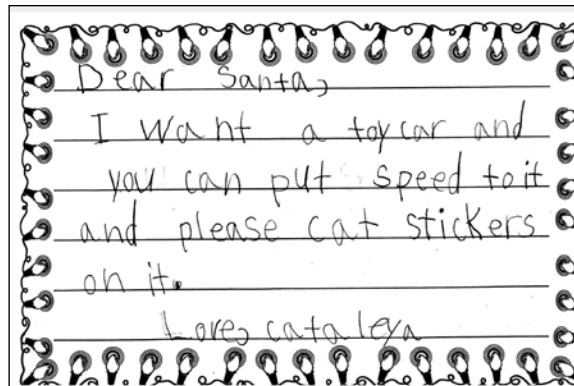 Dear Santa,
I want a toy car and
you can put speed to it
and please cat stickers
on it.
Love, cataleya